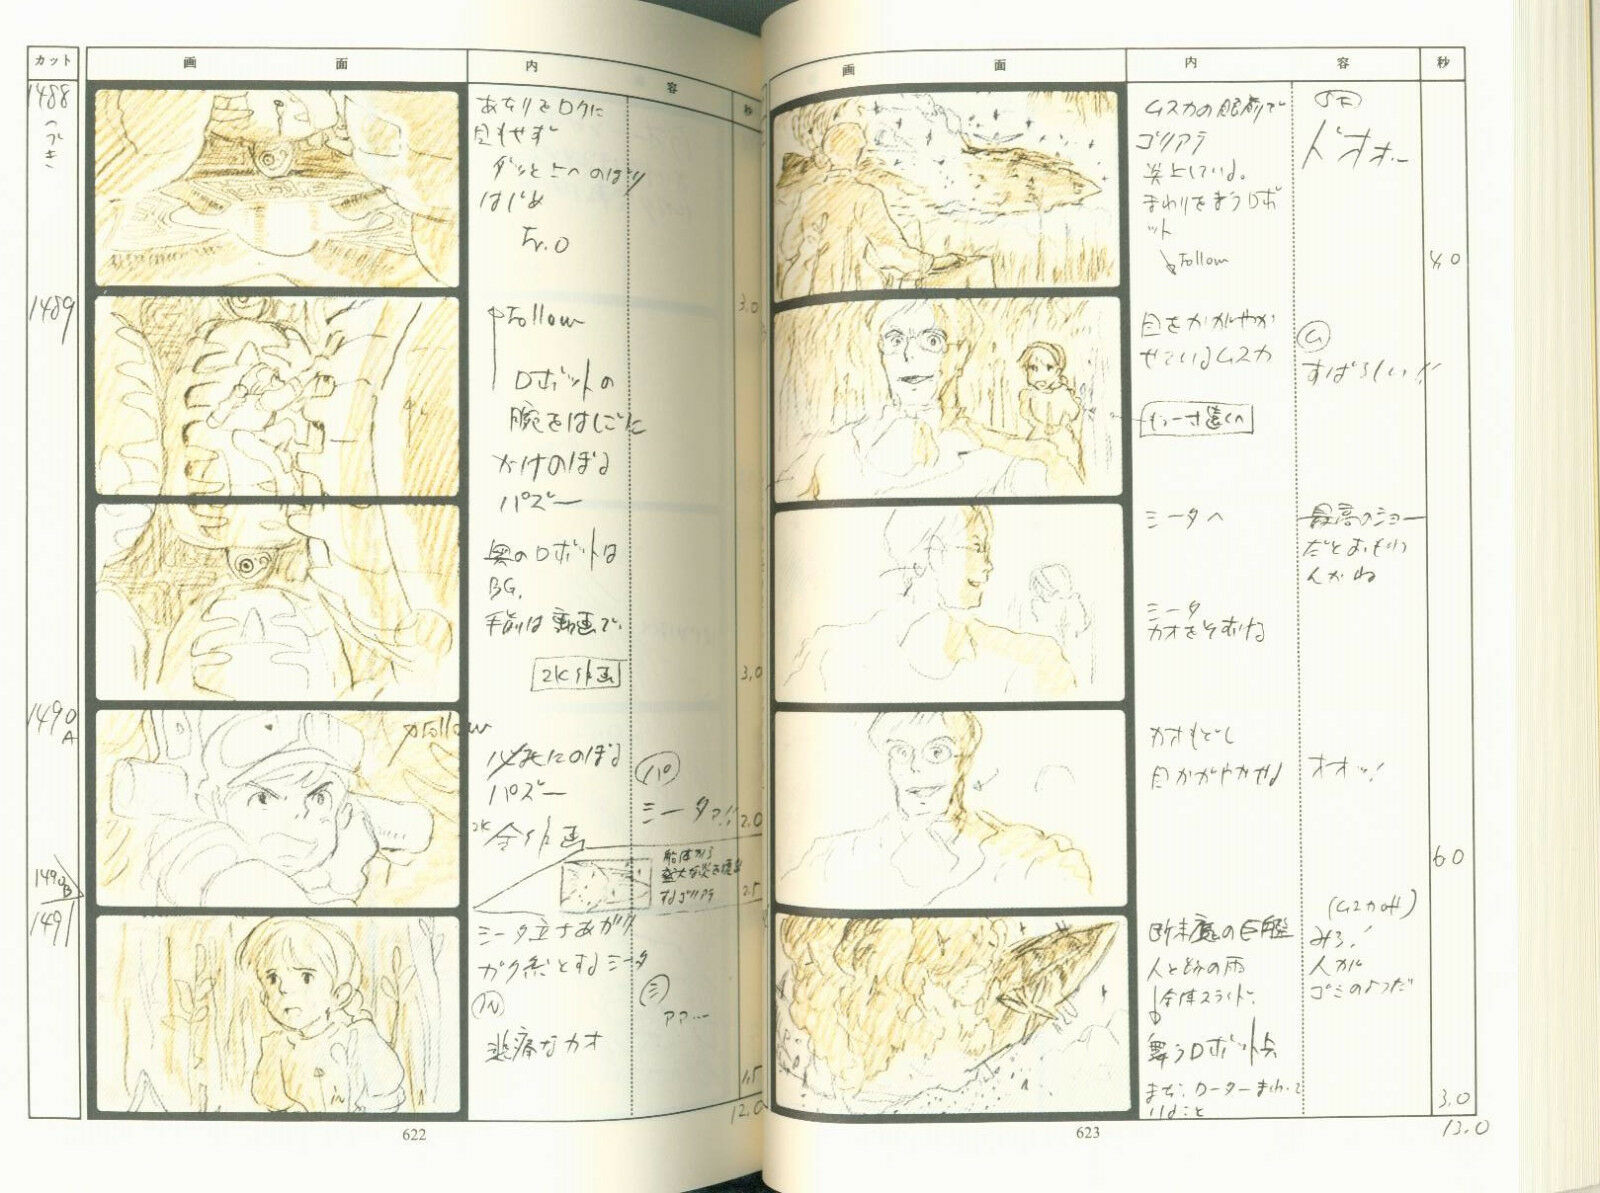 カット
画 面
内 容
秒
1488
つづき
あたりをロクに
目もせず
ダッと上へのぼり
はじめ
Fr.O
3.0
1489
Follow
ロボットの
腕をはしごに
かけのぼる
パズー
奥のロボットは
BG.
手前は動画で.
2K外画
3.0
1490
A
Follow
必死にのぼる
パズー
2K
パ
シータァ!!
2.0
1490B
船体から
すゴリアテ
2.5
1491
シータ立ちあがり
とするシータ
IN
悲痛なカオ
ミ
アア…
1.5
12.0
622
画 面
内 容
秒
ムスカの眼前で
ゴリアテ
炎上している。
まわりをまうロボ
ット
Follow
SE
ドオォー
4.0
目をかがやか
せているムスカ
もう一寸遠くへ
ム
すばらしい!!
シータへ
最高のショー
だとおもわ
んかね
シータ
カオをそむける
カオもどし
目かがやかせる
オオッ!
6.0
断末魔の巨艦
人と
の雨
全体スライド.
舞うロボット兵
(ムスカoff)
みろ!
人が
ゴミのようだ
まだ、ローターまわって
いること
3.0
13.0
623